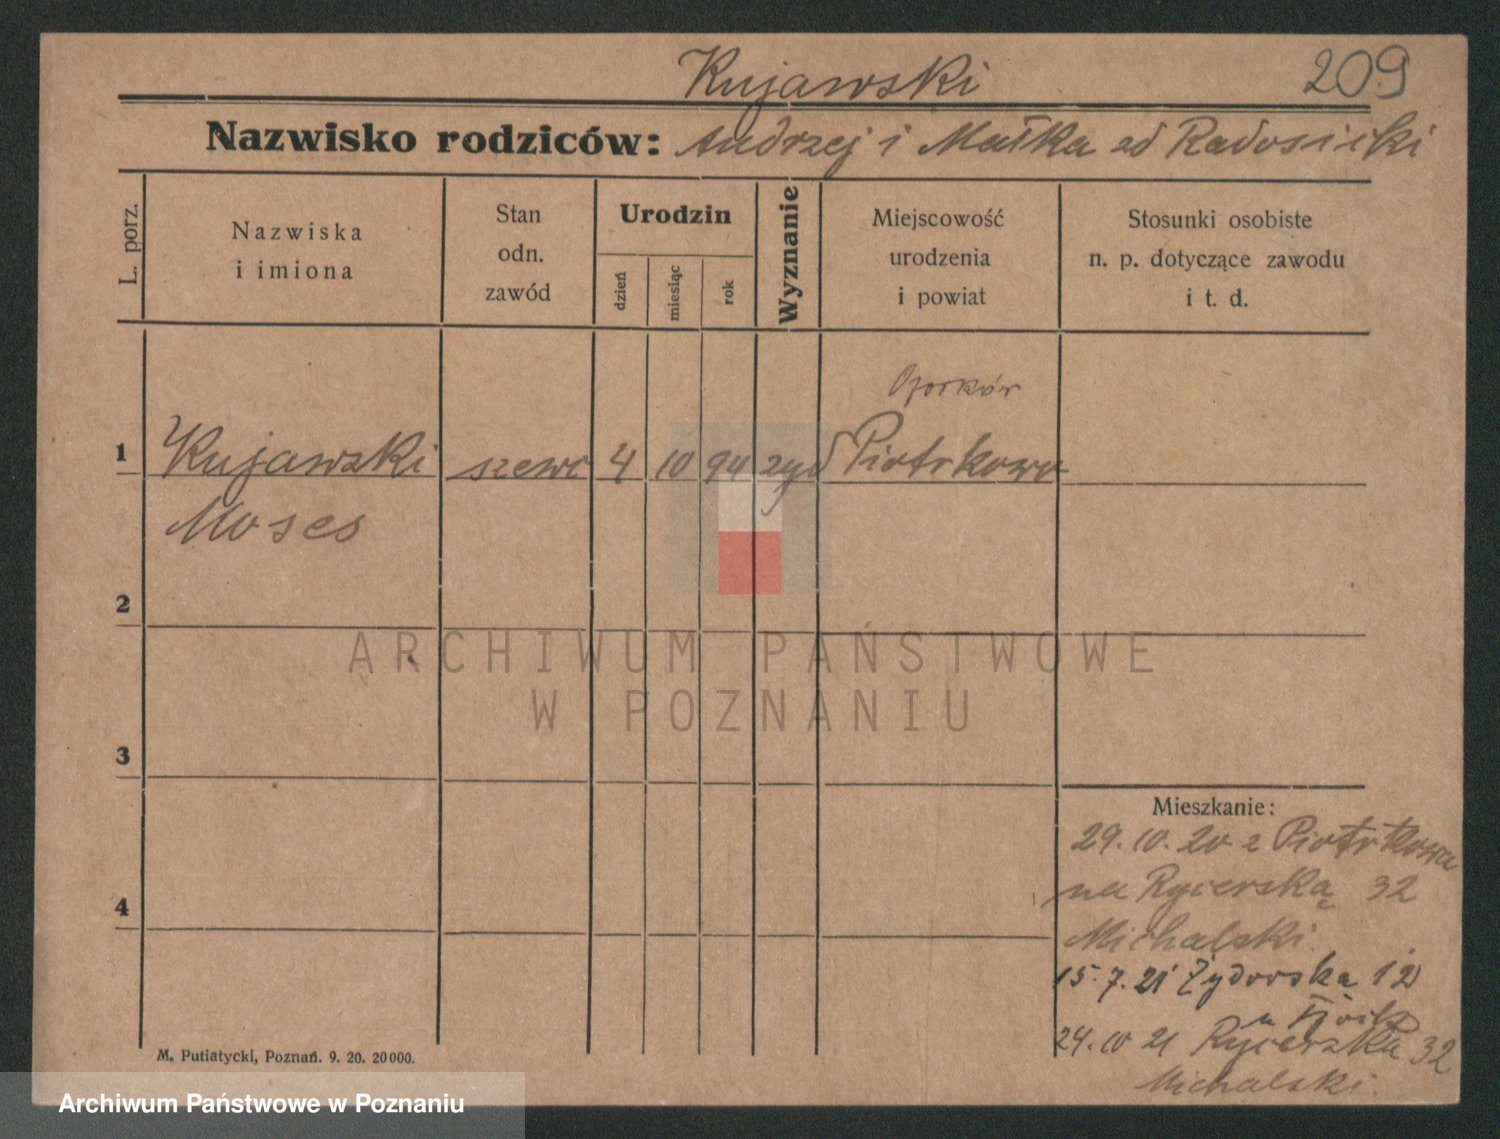 Kujawski 209
Nazwisko rodziców: Andrzej i Małka zd Radosicki
L. porz.
Nazwiska
i imiona
Stan
odn.
zawód
Urodzin
dzień
miesiąc
rok
Wyznanie
Miejscowość
urodzenia
i powiat
Stosunki osobiste
n. p. dotyczące zawodu
i t. d.
Ozorków
1 Kujawski szewc 4 10 94 żyd Piotrkowo
Moses
2
3
4
Mieszkanie:
29.10.20 z Piotrkowa
na Rycerską 32
Michalski.
15.7.21 Żydowska 12
u
24.10 21 Rycerska 32
Michalski.
M. Putiatycki, Poznań. 9. 20. 20000.
ARCHIWUM PAŃSTWOWE
W POZNANIU
Archiwum Państwowe w Poznaniu